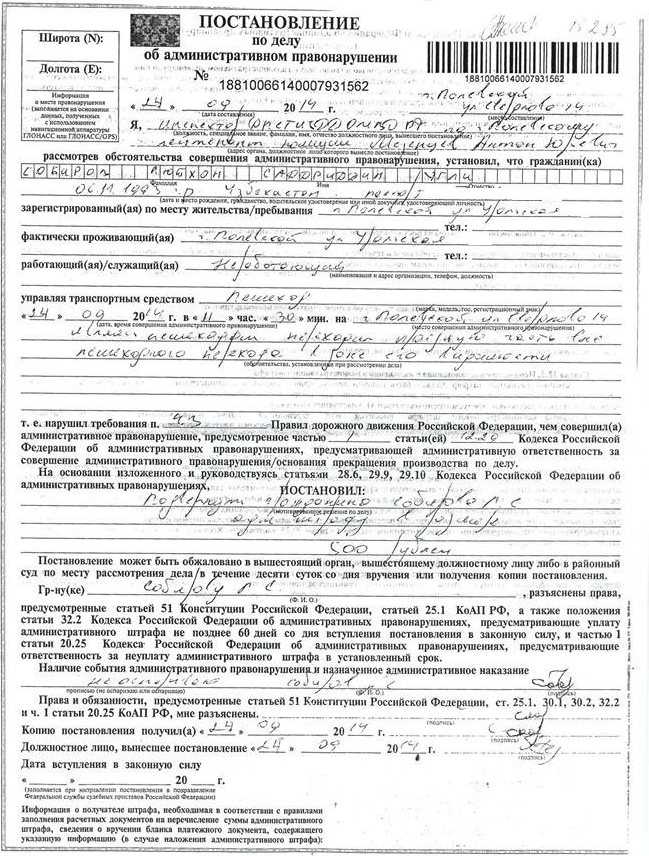 ПОСТАНОВЛЕНИЕ
по делу
об административном правонарушении
№ 18810066140007931562
Широта (N):
Долгота (E):
Информация
о месте правонарушения
(заполняется на основании
данных, полученных
с использованием
навигационной аппаратуры
ГЛОНАСС или ГЛОНАСС/GPS)
18810066140007931562
г. Полевской
ул Свердлова 14
« 24 » 09 2014 г.
(дата составления) (место составления)
Я, Инспектор ДПС по Полевскому
(должность, специальное звание, фамилия, имя, отчество должностного лица, вынесшего постановление)
лейтенант полиции Антон Юрьевич
рассмотрев обстоятельства совершения административного правонарушения, установил, что гражданин(ка)
СОБИРОВ САДРИДДИН УГЛИ
Фамилия Имя Отчество
06.11.1993 г.р Узбекистан
(дата и место рождения, гражданство, водительское удостоверение или иной документ, удостоверяющий личность)
зарегистрированный(ая) по месту жительства/пребывания г. Полевской ул Уральская
тел.:
фактически проживающий(ая) г. Полевской ул Уральская
тел.:
работающий(ая)/служащий(ая) Не работающий
(наименования и адрес организации, телефон, должность)
управляя транспортным средством Пешеход
(марка, модель, гос. регистрационный знак)
« 24 » 09 2014 г. в « 11 » час. « 30 » мин. на г. Полевской ул Свердлова 14
(дата, время совершения административного правонарушения) (место совершения административного правонарушения)
пешеходом переходил проезжую часть вне
пешеходного перехода в зоне его видимости
(обстоятельства, установленные при рассмотрении дела)
т. е. нарушил требования п. 4.3 Правил дорожного движения Российской Федерации, чем совершил(а)
административное правонарушение, предусмотренное частью 1 статьи(ей) 12.29 Кодекса Российской
Федерации об административных правонарушениях, предусматривающей административную ответственность за
совершение административного правонарушения/основания прекращения производства по делу.
На основании изложенного и руководствуясь статьями 28.6, 29.9, 29.10 Кодекса Российской Федерации об
административных правонарушениях,
ПОСТАНОВИЛ:
Подвергнуть гражданина Собирова Л С
(мотивированное решение по делу)
адм штрафу в размере
500 рублей
Постановление может быть обжаловано в вышестоящий орган, вышестоящему должностному лицу либо в районный
суд по месту рассмотрения дела/в течение десяти суток со дня вручения или получения копии постановления.
Гр-ну(ке) Собирову Л С , разъяснены права,
(Ф. И. О.)
предусмотренные статьей 51 Конституции Российской Федерации, статьей 25.1 КоАП РФ, а также положения
статьи 32.2 Кодекса Российской Федерации об административных правонарушениях, предусматривающие уплату
административного штрафа не позднее 60 дней со дня вступления постановления в законную силу, и частью 1
статьи 20.25 Кодекса Российской Федерации об административных правонарушениях, предусматривающей
ответственность за неуплату административного штрафа в установленный срок.
Наличие события административного правонарушения и назначенное административное наказание
не оспариваю Собиров Л С
прописью (не оспариваю или обтариваю) (Ф. И. О.) (подпись)
Права и обязанности, предусмотренные статьей 51 Конституции Российской Федерации, ст. 25.1, 30.1, 30.2, 32.2
и ч. 1 статьи 20.25 КоАП РФ, мне разъяснены.
(подпись)
Копию постановления получил(а) « 24 » 09 2014 г.
(подпись)
Должностное лицо, вынесшее постановление « 24 » 09 2014 г.
(подпись)
Дата вступления в законную силу
« » 20 г.
(заполняется при направлении постановления в подразделение
Федеральной службы судебных приставов Российской Федерации)
Информация о получателе штрафа, необходимая в соответствии с правилами
заполнения расчетных документов на перечисление суммы административного
штрафа, сведения о вручении бланка платежного документа, содержащего
указанную информацию (в случае наложения административного штрафа):